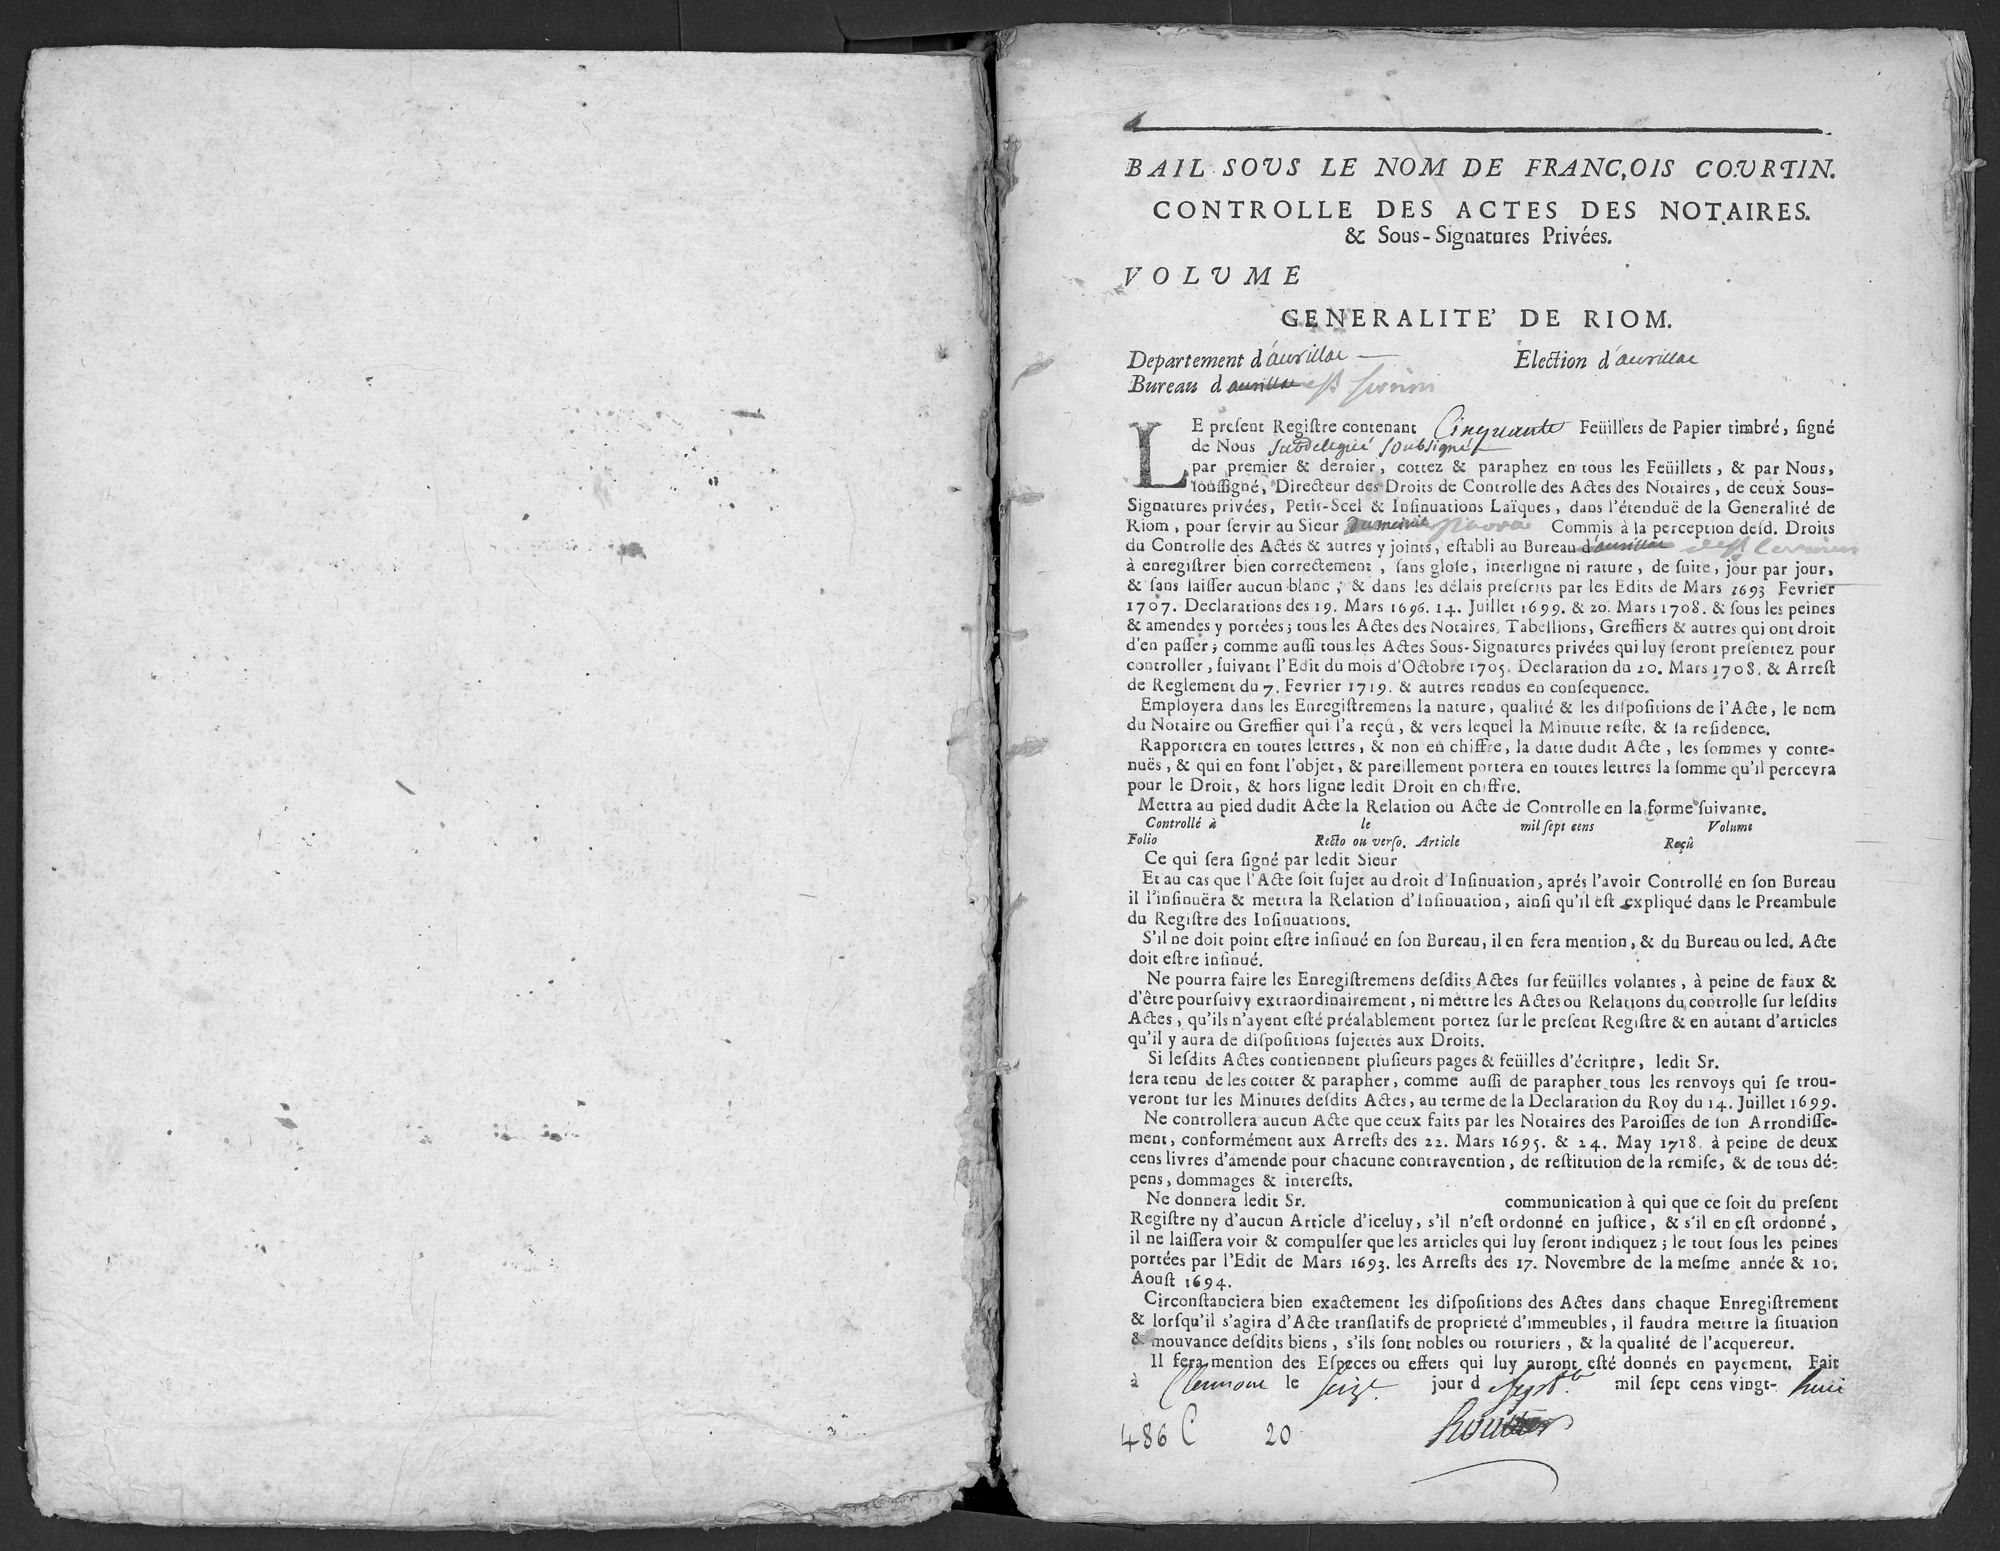 BAIL SOUS LE NOM DE FRANC,OIS COURTIN.
CONTROLLE DES ACTES DES NOTAIRES.
& Sous-Signatures Privées.
VOLUME
GENERALITE' DE RIOM.
Departement d'aurillac Election d'aurillac
Bureau d aurillac
LE preſent Regiſtre contenant Cinquante Feüillets de Papier timbré, ſigné
de Nous subdelegué soubsigné
par premier & dernier, cottez & paraphez en tous les Feüillets, & par Nous,
ſouſſigné, Directeur des Droits de Controlle des Actes des Notaires, de ceux Sous-
Signatures privées, Petit-Scel & Inſinuations Laïques, dans l'étenduë de la Generalité de
Riom, pour ſervir au Sieur Commis à la perception deſd. Droits
du Controlle des Actes & autres y joints, eſtabli au Bureau d'aurillac
à enregiſtrer bien correctement, ſans gloſe, interligne ni rature, de ſuite, jour par jour,
& ſans laiſſer aucun blanc, & dans les délais preſcrits par les Edits de Mars 1693 Fevrier
1707. Declarations des 19. Mars 1696. 14. Juillet 1699. & 20. Mars 1708. & ſous les peines
& amendes y portées; tous les Actes des Notaires, Tabellions, Greffiers & autres qui ont droit
d'en paſſer; comme auſſi tous les Actes Sous-Signatures privées qui luy ſeront preſentez pour
controller, ſuivant l'Edit du mois d'Octobre 1705. Declaration du 20. Mars 1708. & Arreſt
de Reglement du 7. Fevrier 1719. & autres rendus en conſequence.
Employera dans les Enregiſtremens la nature, qualité & les diſpoſitions de l'Acte, le nom
du Notaire ou Greffier qui l'a reçû, & vers lequel la Minutte reſte, & ſa reſidence.
Rapportera en toutes lettres, & non en chiffre, la datte dudit Acte, les ſommes y conte-
nuës, & qui en font l'objet, & pareillement portera en toutes lettres la ſomme qu'il percevra
pour le Droit, & hors ligne ledit Droit en chiffre.
Mettra au pied dudit Acte la Relation ou Acte de Controlle en la forme ſuivante.
Controllé à le mil ſept cens Volume
Folio Recto ou verſo. Article Reçû
Ce qui ſera ſigné par ledit Sieur
Et au cas que l'Acte ſoit ſujet au droit d'Inſinuation, aprés l'avoir Controllé en ſon Bureau
il l'inſinuëra & mettra la Relation d'Inſinuation, ainſi qu'il eſt expliqué dans le Preambule
du Regiſtre des Inſinuations.
S'il ne doit point eſtre inſinué en ſon Bureau, il en fera mention, & du Bureau ou led. Acte
doit eſtre inſinué.
Ne pourra faire les Enregiſtremens deſdits Actes ſur feüilles volantes, à peine de faux &
d'être pourſuivy extraordinairement, ni mettre les Actes ou Relations du controlle ſur leſdits
Actes, qu'ils n'ayent eſté préalablement portez ſur le preſent Regiſtre & en autant d'articles
qu'il y aura de diſpoſitions ſujettes aux Droits.
Si leſdits Actes contiennent pluſieurs pages & feüilles d'écriture, ledit Sr.
ſera tenu de les cotter & parapher, comme auſſi de parapher tous les renvoys qui ſe trou-
veront ſur les Minutes deſdits Actes, au terme de la Declaration du Roy du 14. Juillet 1699.
Ne controllera aucun Acte que ceux faits par les Notaires des Paroiſſes de ſon Arrondiſſe-
ment, conformément aux Arreſts des 22. Mars 1695. & 24. May 1718. à peine de deux
cens livres d'amende pour chacune contravention, de reſtitution de la remiſe, & de tous dé-
pens, dommages & intereſts.
Ne donnera ledit Sr. communication à qui que ce ſoit du preſent
Regiſtre ny d'aucun Article d'iceluy, s'il n'eſt ordonné en juſtice, & s'il en eſt ordonné,
il ne laiſſera voir & compulſer que les articles qui luy ſeront indiquez; le tout ſous les peines
portées par l'Edit de Mars 1693. les Arreſts des 17. Novembre de la meſme année & 10.
Aouſt 1694.
Circonſtanciera bien exactement les diſpoſitions des Actes dans chaque Enregiſtrement
& lorſqu'il s'agira d'Acte tranſlatifs de proprieté d'immeubles, il faudra mettre la ſituation
& mouvance deſdits biens, s'ils ſont nobles ou roturiers, & la qualité de l'acquereur.
Il fera mention des Eſpeces ou effets qui luy auront eſté donnés en payement. Fait
à Clermont le seize jour d septbe mil ſept cens vingt- huit
486 C 20